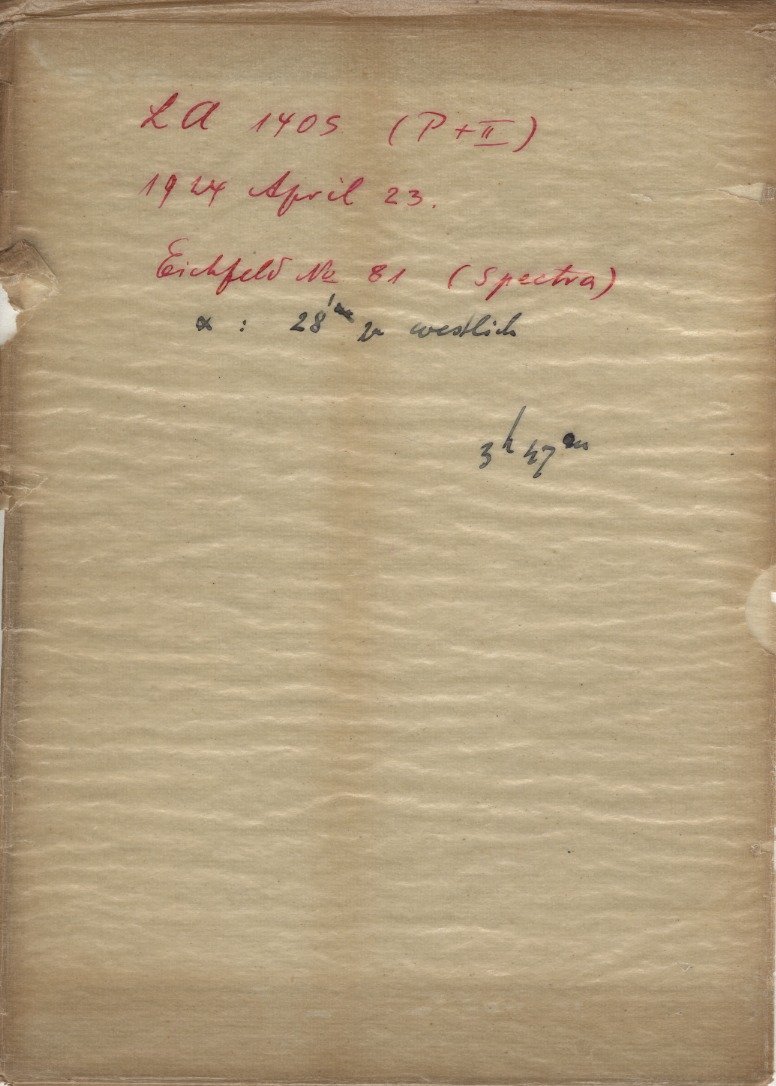 LA 1405 (P+II)
1924 April 23.
Eichfeld No 81 (Spectra)
α : 28ᵐ zu westlich
3ʰ 47ᵐ